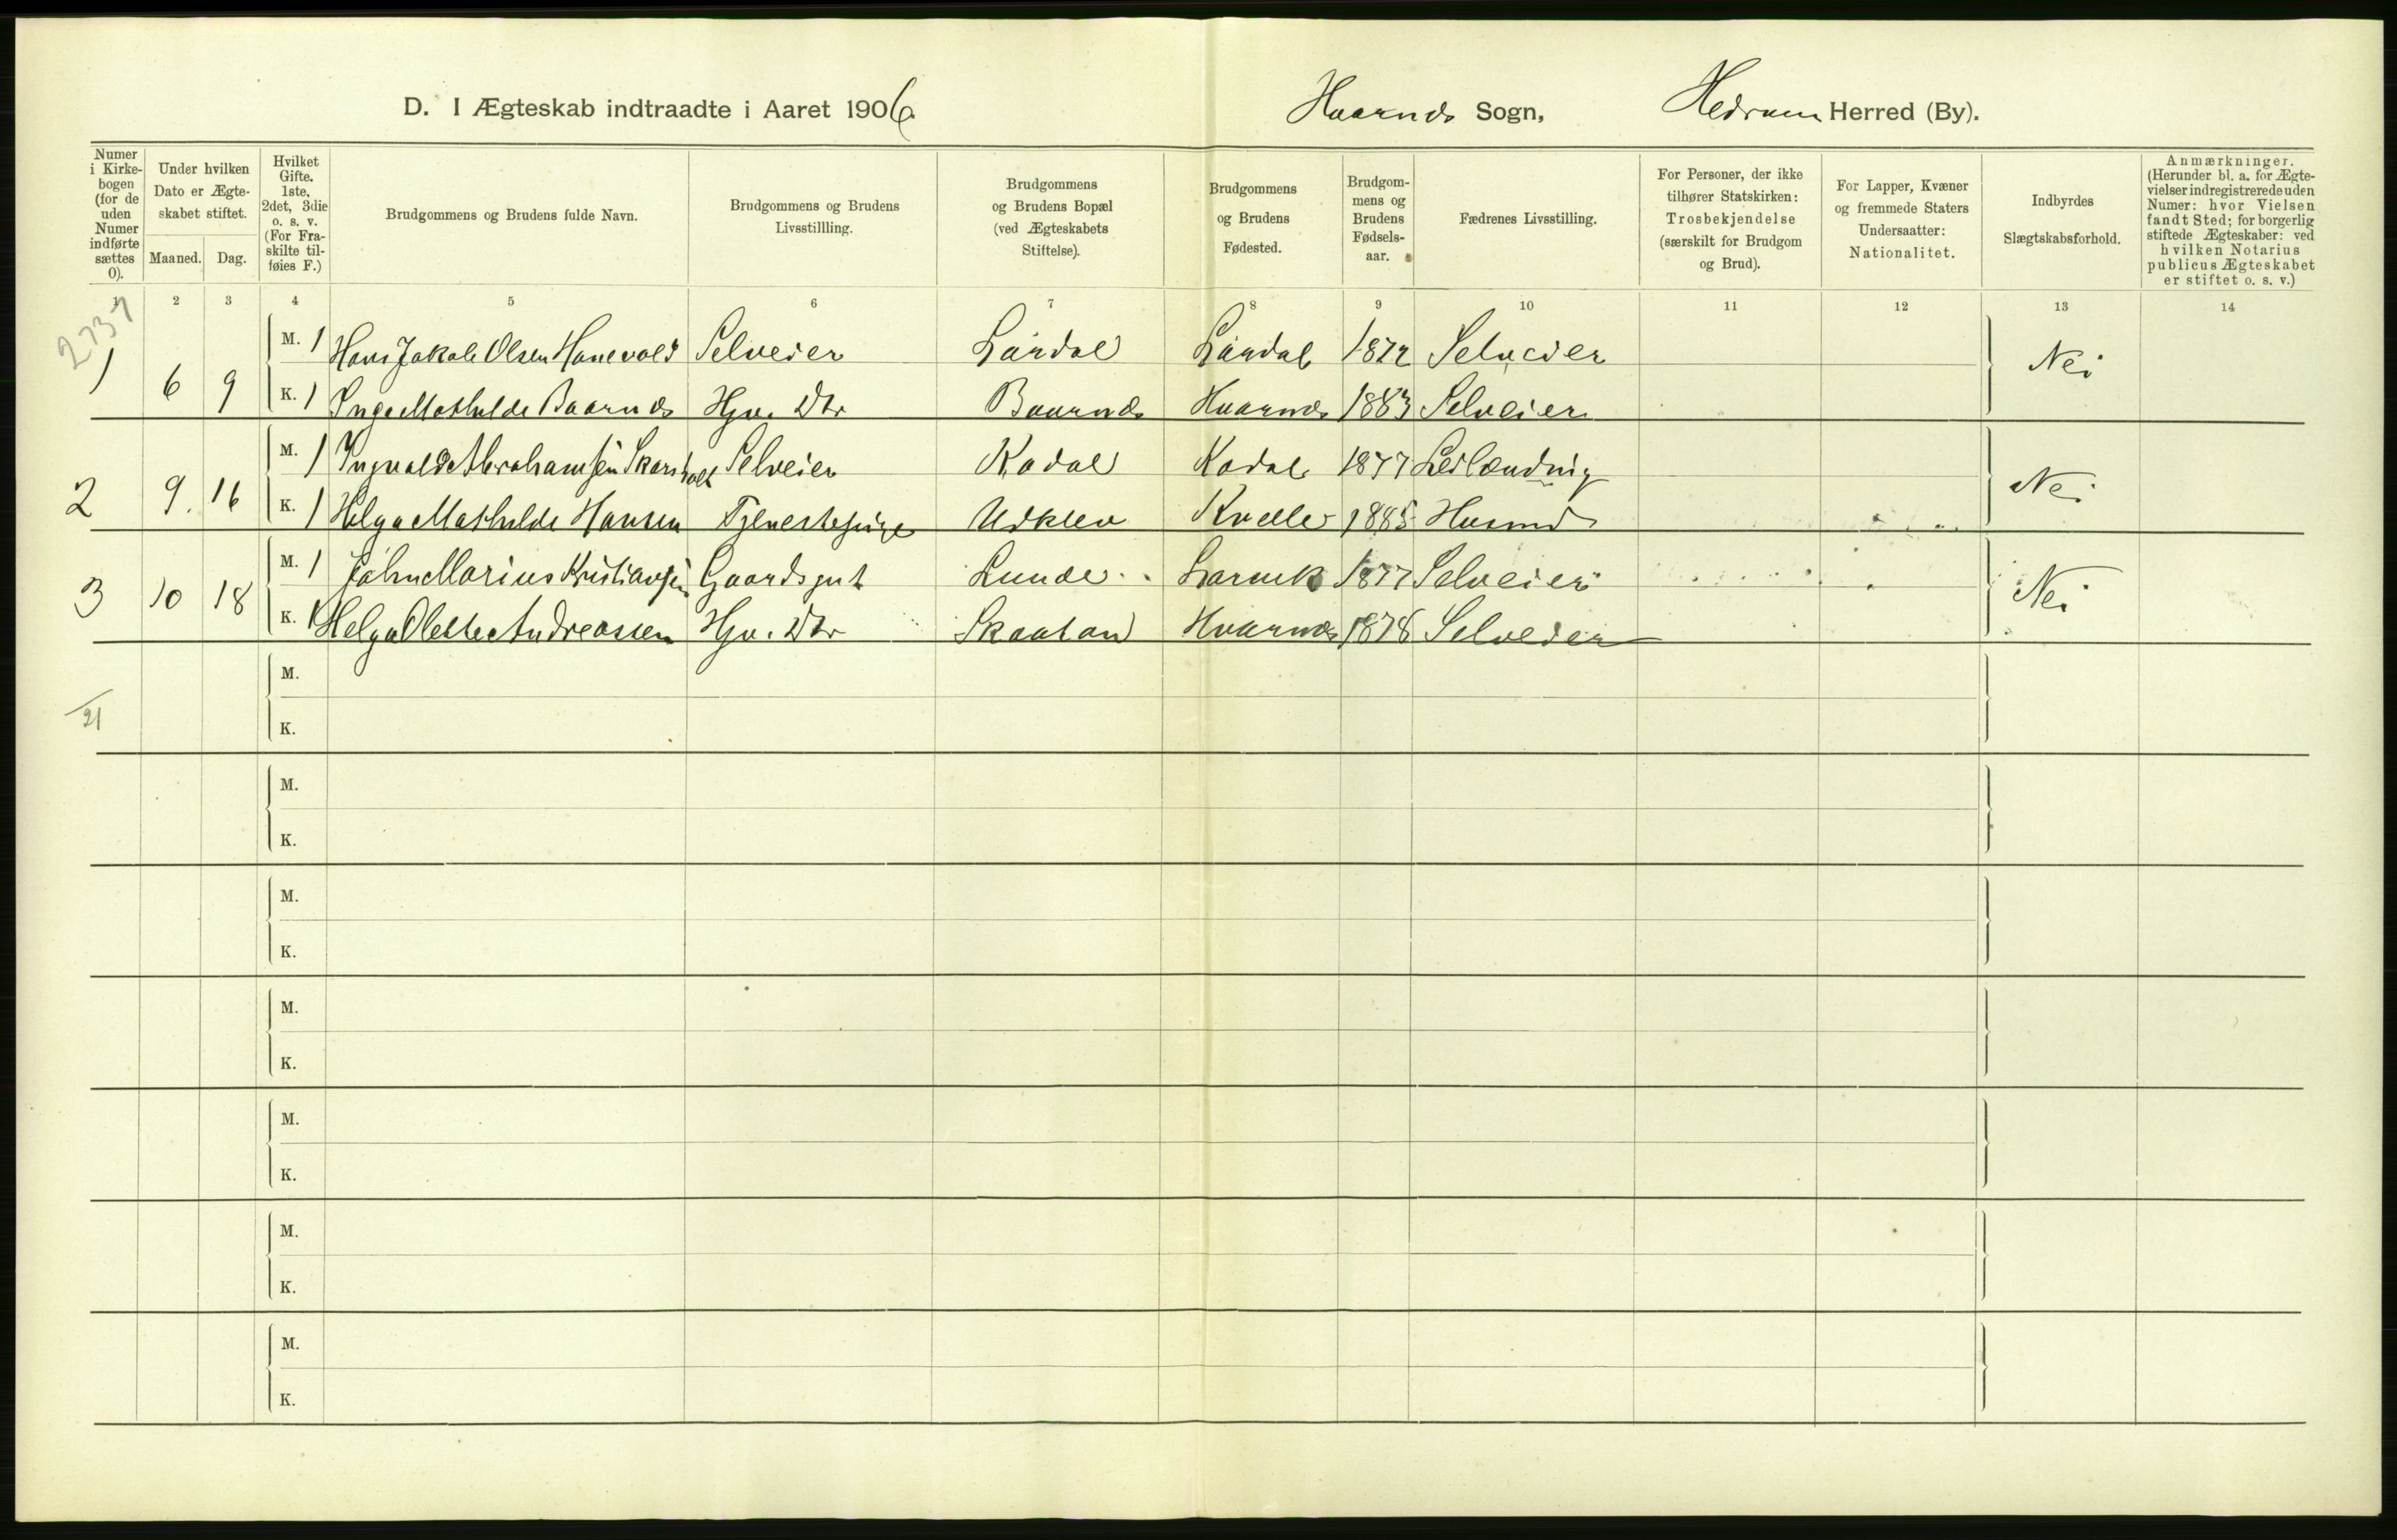 D. I Ægteskab indtraadte i Aaret 1906. Hvarnes Sogn, Hedrum Herred (By).
Numer i Kirkebogen (for de uden Numer indførte sættes 0).
Under hvilken Dato er Ægteskabet stiftet.
Maaned. Dag.
Hvilket Gifte. 1ste, 2det, 3die o. s. v. (For Fraskilte tilføies F.)
Brudgommens og Brudens fulde Navn.
Brudgommens og Brudens Livsstillling.
Brudgommens og Brudens Bopæl (ved Ægteskabets Stiftelse).
Brudgommens og Brudens Fødested.
Brudgommens og Brudens Fødselsaar.
Fædrenes Livsstilling.
For Personer, der ikke tilhører Statskirken: Trosbekjendelse (særskilt for Brudgom og Brud).
For Lapper, Kvæner og fremmede Staters Undersaatter: Nationalitet.
Indbyrdes Slægtskabsforhold.
Anmærkninger. (Herunder bl. a. for Ægtevielser indregistrerede uden Numer: hvor Vielsen fandt Sted; for borgerlig stiftede Ægteskaber: ved hvilken Notarius publicus Ægteskabet er stiftet o. s. v.)
1 2 3 4 5 6 7 8 9 10 11 12 13 14
2737
M. 1 Hans Jakob Olsen Hanevold Selveier Lardal Lardal 1872 Selveier
1 6 9 Nei
K. 1 Inga Mathilde Baarnes Hjv. Dtr Baarnes Hvarnes 1883 Selveier
M. 1 Ingvald Abrahamsen Skarsholt Selveier Kodal Kodal 1877 Leilænding
2 9. 16 Nei
K. 1 Helga Mathilde Hansen Tjenestepige Udklev Kvelle 1885 Husmd
M. 1 John Marius Kristiansen Gaardsgut Lunde Larvik 1877 Selveier
3 10 18 Nei
K. 1 Helga Olette Andreassen Hjv. Dtr Skaatan Hvarnes 1878 Selveier
M.
21
K.
M.
K.
M.
K.
M.
K.
M.
K.
M.
K.
M.
K.